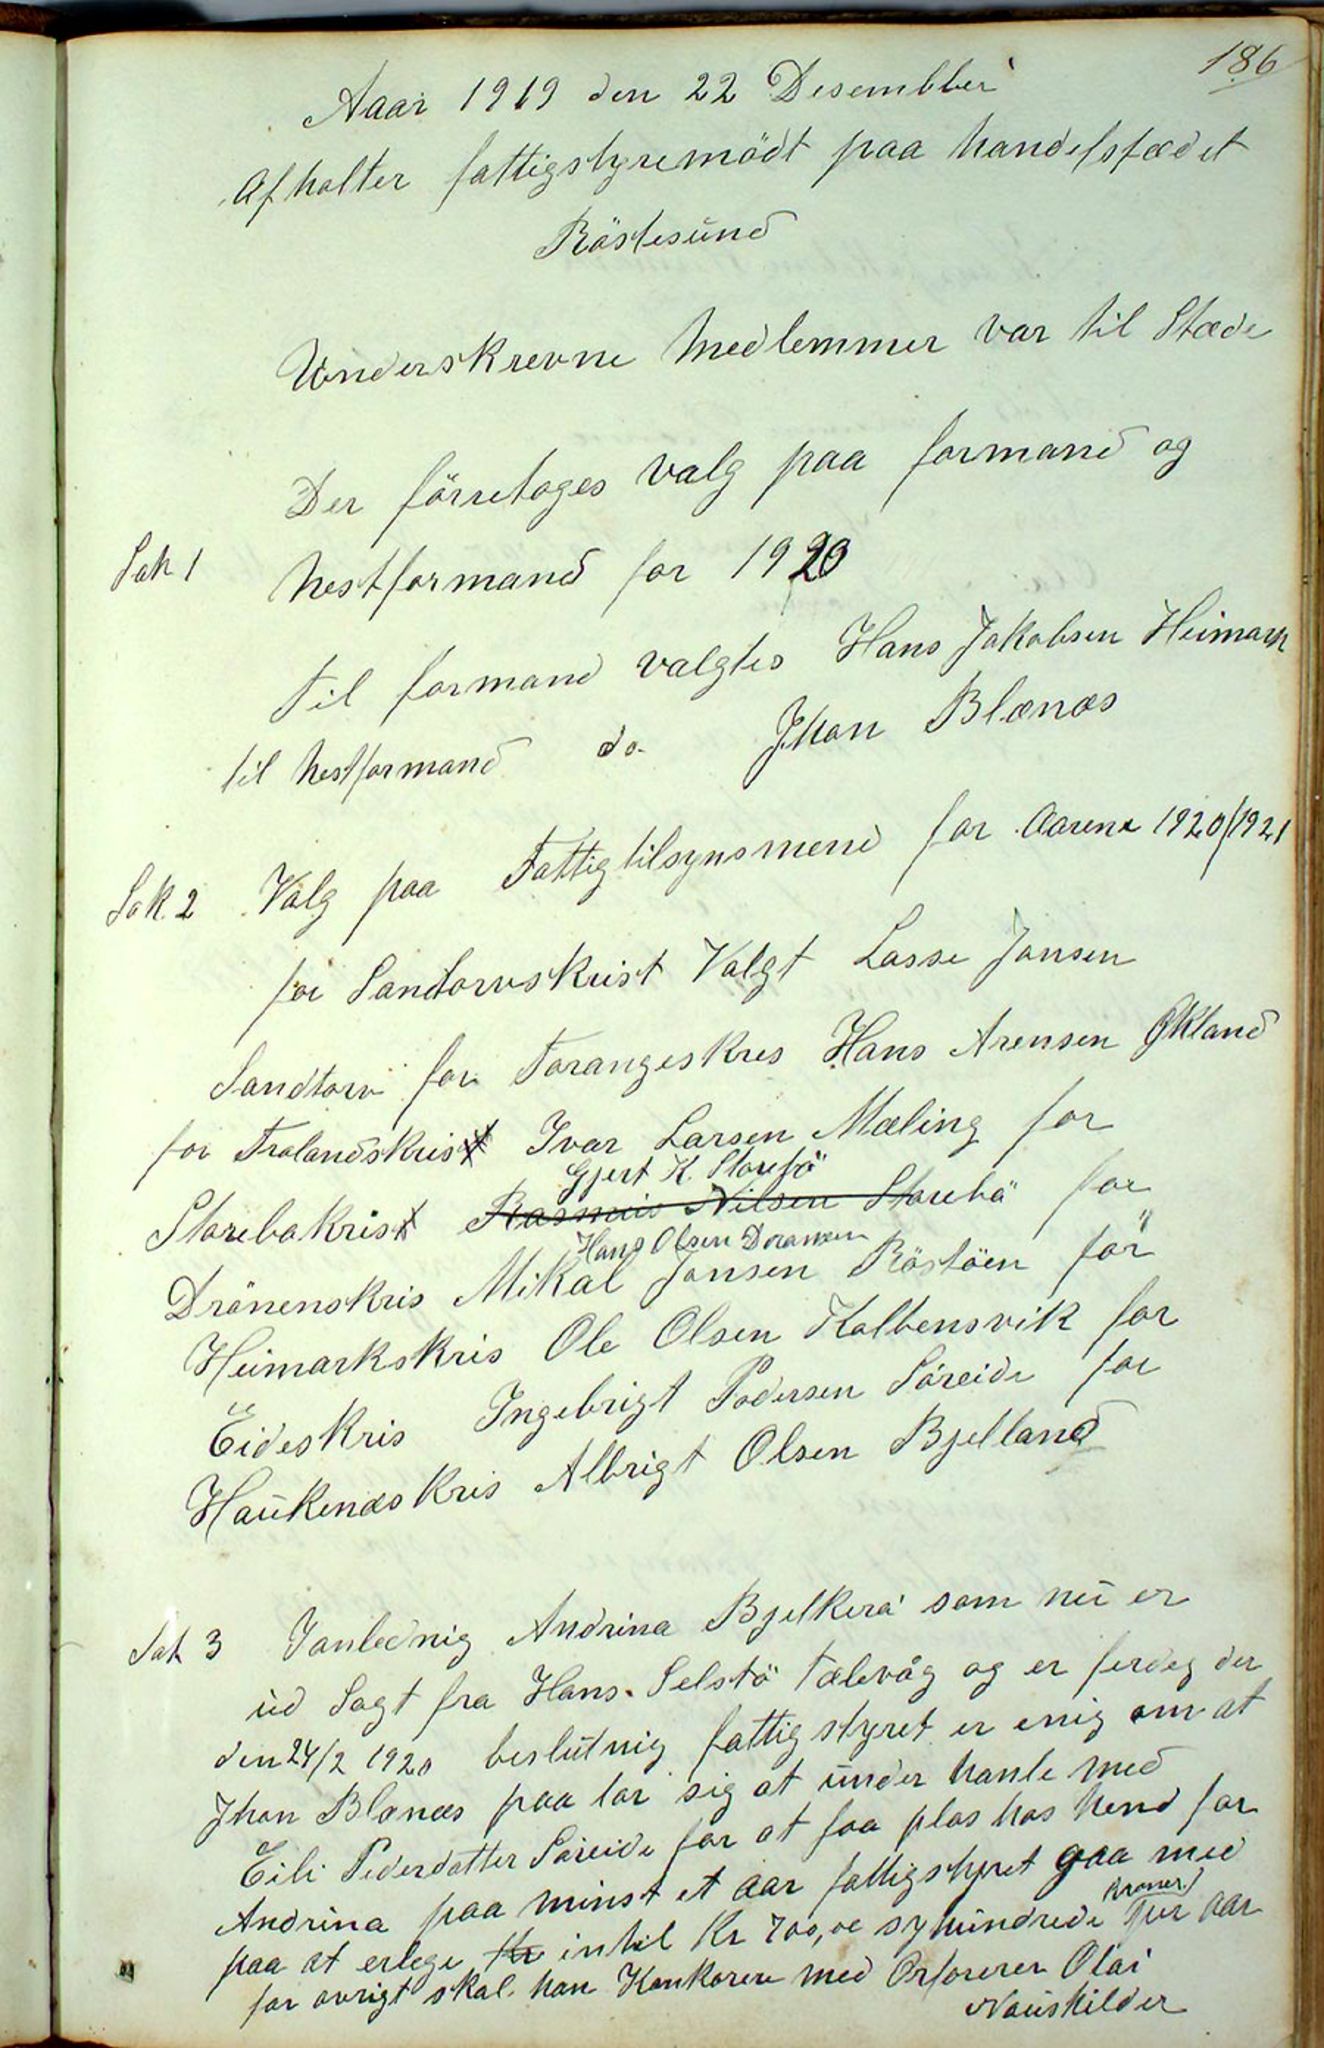 186
Aaar 1919 den 22 Desembber
Afholter fattigstyremödt paa handelsstædet
Röstesund
Underskrevne Medlemmer var til Stæde
Der förretoges valg paa formand og
Sak 1 nestformand for 1920
Til formand valgtes Hans Jakobsen Heimark
til nestformand do. Jhon Blænæs
Sak. 2 Valg paa Fattigtilsynsmend for Aarene 1920/1921
for Sandtorvskrist Valgt Lasse Jansen
Sandtorv for Torangeskres Hans Arensen Økland
for Tralandskris Ivar Larsen Mæling for
Gjert K. Storebö
Storebokris Rasmus Nilsen Storebö for
Hans Olsen Dronnen
Drönenskris Mikal Jansen Röstöen för
Heimarkskris Ole Olsen Kolbensvik for
Eideskris Ingebrigt Pedersen Söreide for
Haukenæskris Albrigt Olsen Bjelland
Sak 3 Ianlednig Andrina Bjelkerö som nu er
ud Sagt fra Hans Selstö Tælevåg og er ferdeg der
den 24/2 1920 beslutnig fattigstyret er enig om at
Jhon Blænæs paa tar sig at under hanle med
Eili Pedersdatter Söreide for at faa plas hos hend for
Andrina paa minst et aar fattigstyret gaa med
paa at erlege Kr intil Kr 700,oo syhundrede kroner per aar
for øvrigt skal han Konkorere med Orforerer Olai
Nauskilder